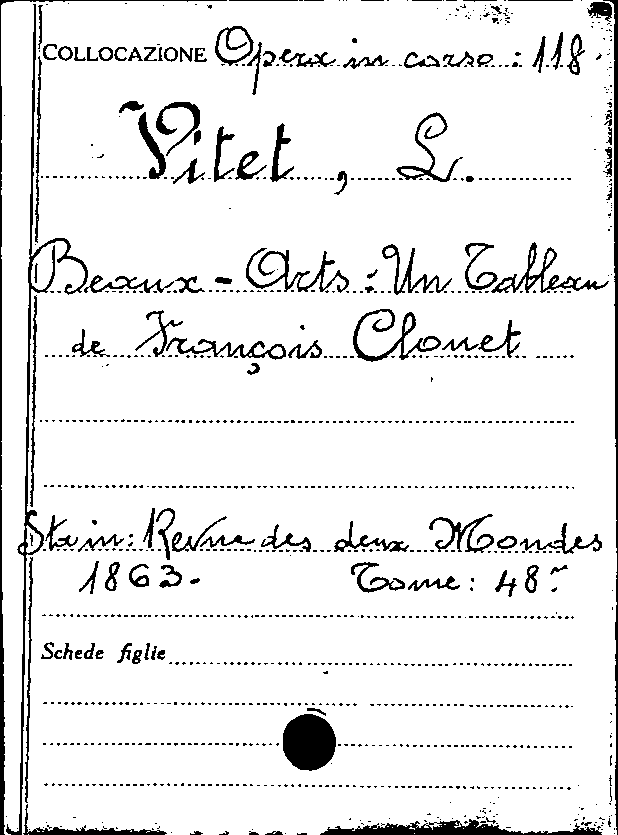 COLLOCAZIONE Opera in corso : 118.
Vitet, L.
Beaux-Arts : Un Tableau
de François Clouet
Sta in: Revue des deux Mondes
1863. Tome: 48.
Schede figlie